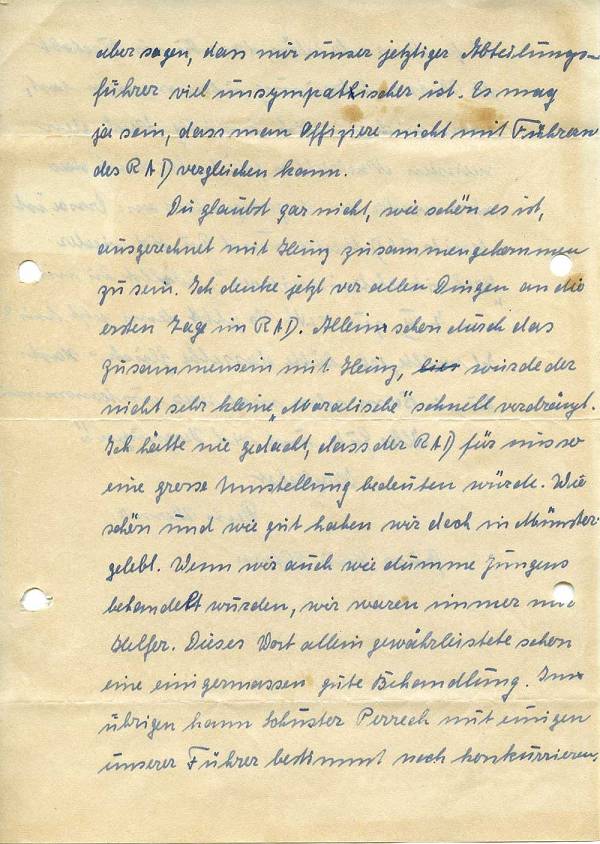 aber sagen, dass mir unser jetziger Abteilungs-
führer viel unsympathischer ist. Es mag
ja sein, dass man Offiziere nicht mit Führern
des RAD vergleichen kann.
Du glaubst gar nicht, wie schön es ist,
ausgerechnet mit Heinz zusammengekommen
zu sein. Ich denke jetzt vor allen Dingen an die
ersten Tage im RAD. Allein schon durch das
Zusammensein mit Heinz, wurde der
nicht sehr kleine „Moralische“ schnell verdrängt.
Ich hätte nie gedacht, dass der RAD für uns so
eine grosse Umstellung bedeuten würde. Wie
schön und wie gut haben wir doch in Münster
gelebt. Wenn wir auch wie dumme Jungens
behandelt wurden, wir waren immer
Helfer. Dieses Wort allein gewährleistete schon
eine einigermassen gute Behandlung. Im
übrigen kann Schuster Perrech mit einigen
unserer Führer bestimmt noch konkurrieren,